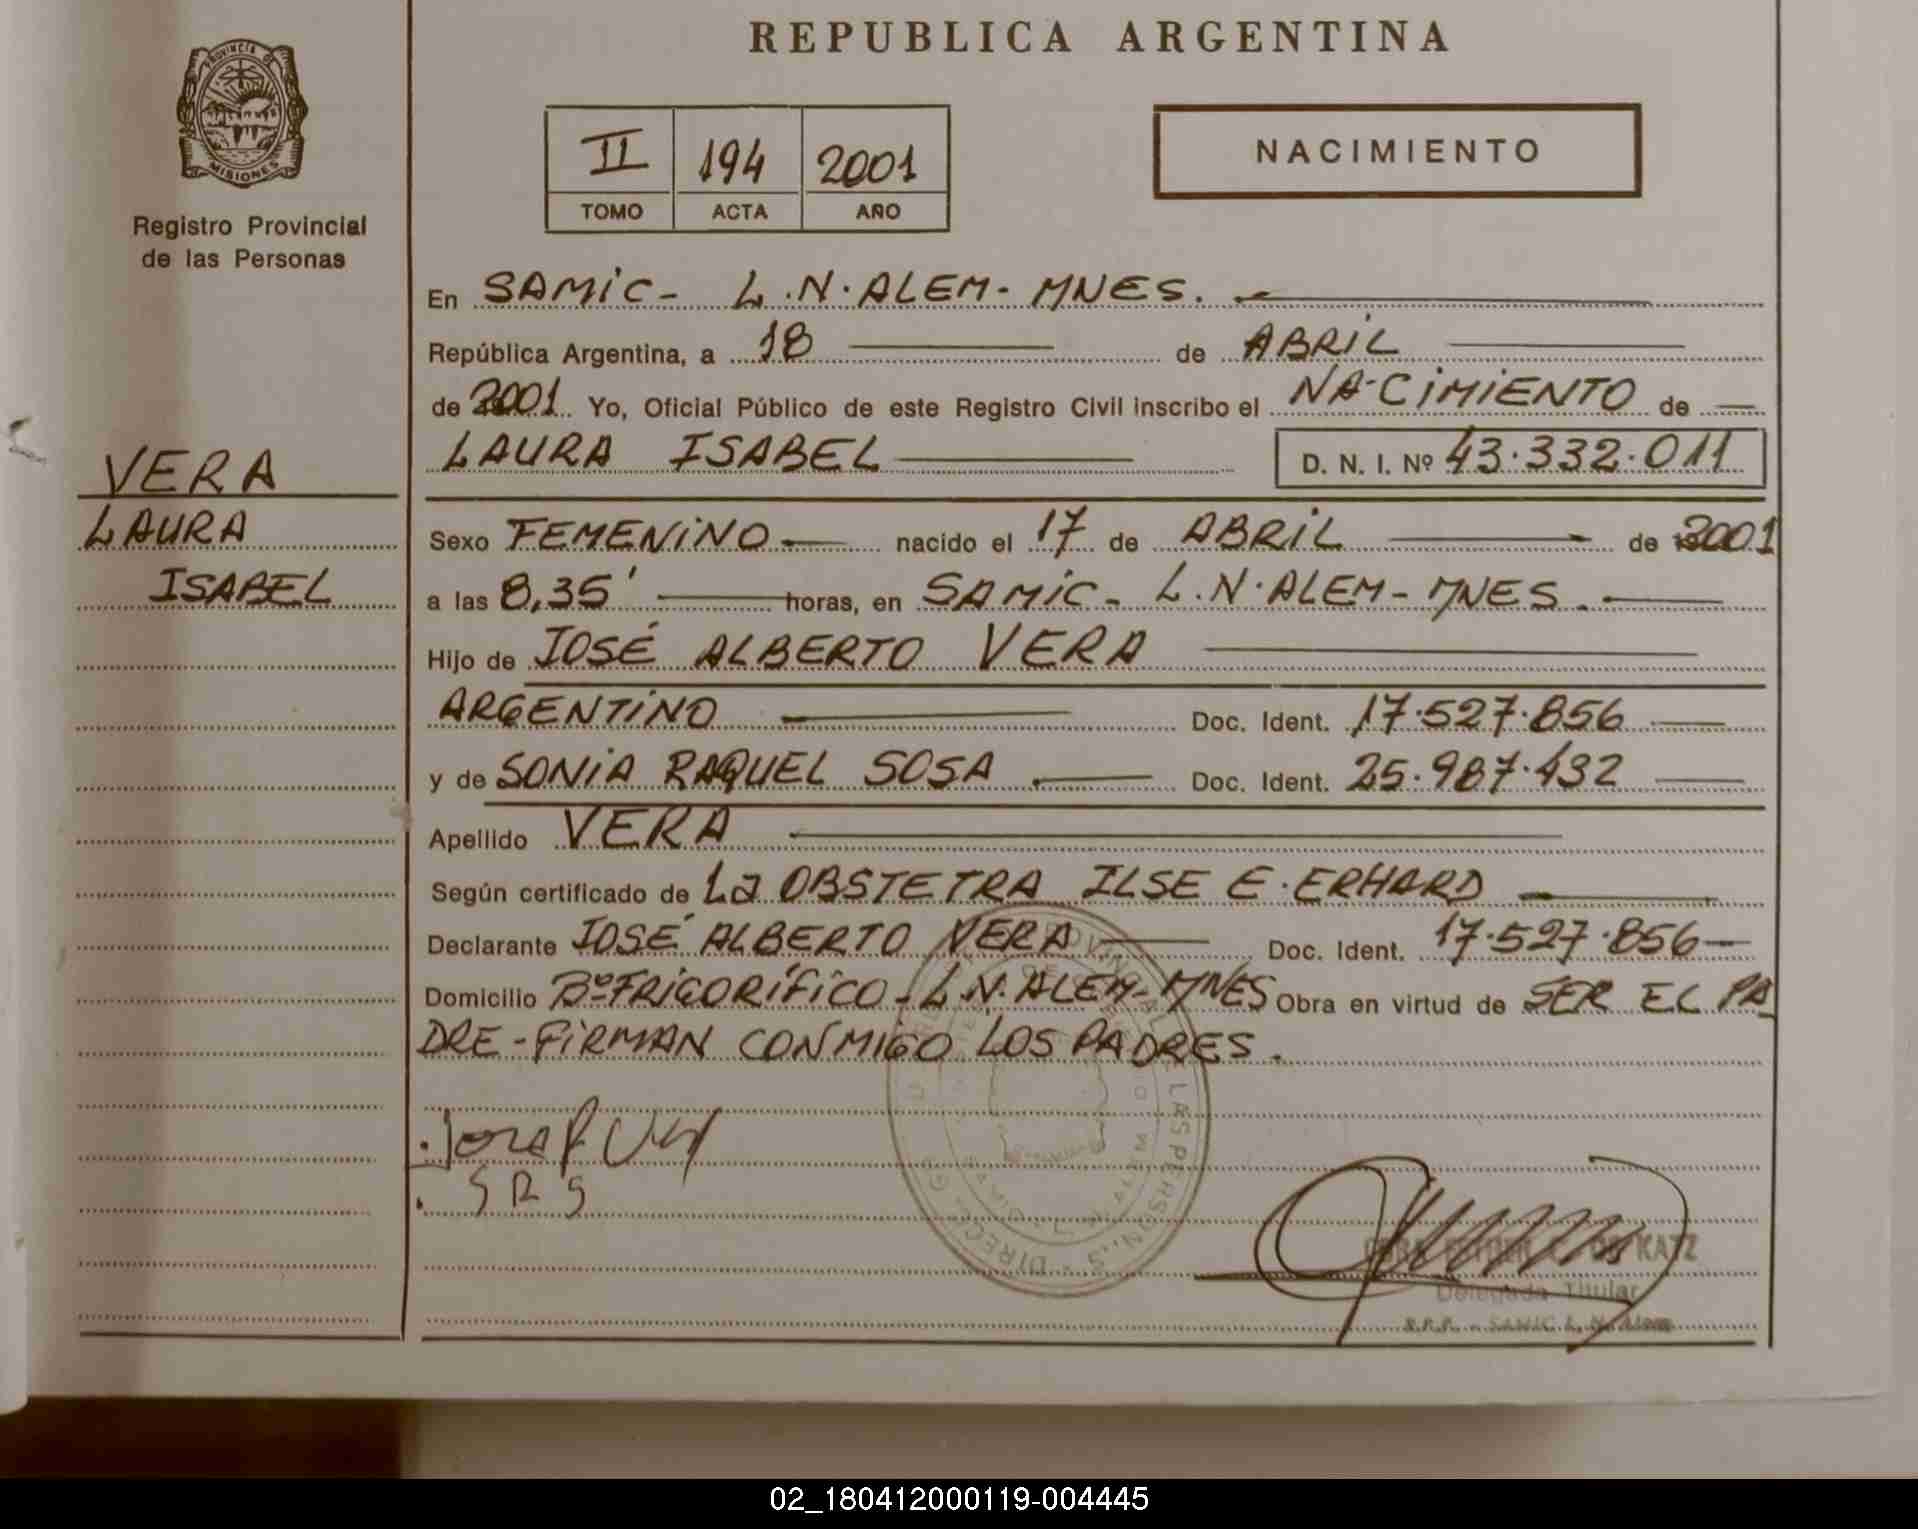 REPUBLICA ARGENTINA
PROVINCIA DE
MISIONES
Registro Provincial
de las Personas
II 194 2001
TOMO ACTA AÑO
NACIMIENTO
En SAMIC- L.N.ALEM- MNES.
República Argentina, a 18 de ABRIL
de 2001 Yo, Oficial Público de este Registro Civil inscribo el NA-CIMIENTO de
LAURA ISABEL D. N. I. Nº 43.332.011
VERA
LAURA
ISABEL
Sexo FEMENINO nacido el 17 de ABRIL de 2001
a las 8,35' horas, en SAMIC- L.N.ALEM- MNES.
Hijo de JOSÉ ALBERTO VERA
ARGENTINO Doc. Ident. 17.527.856
y de SONIA RAQUEL SOSA. Doc. Ident. 25.987.432
Apellido VERA
Según certificado de La OBSTETRA ILSE E. ERHARD
Declarante JOSÉ ALBERTO VERA Doc. Ident. 17.527.856
Domicilio BºFRIGORÍFICO- L.N.ALEM- MNES Obra en virtud de SER EL PA
DRE-FIRMAN CONMIGO LOS PADRES.
S R S
KATZ
Delegada Titular
R.P.P. - SAMIC L. N. Alem
02_180412000119-004445